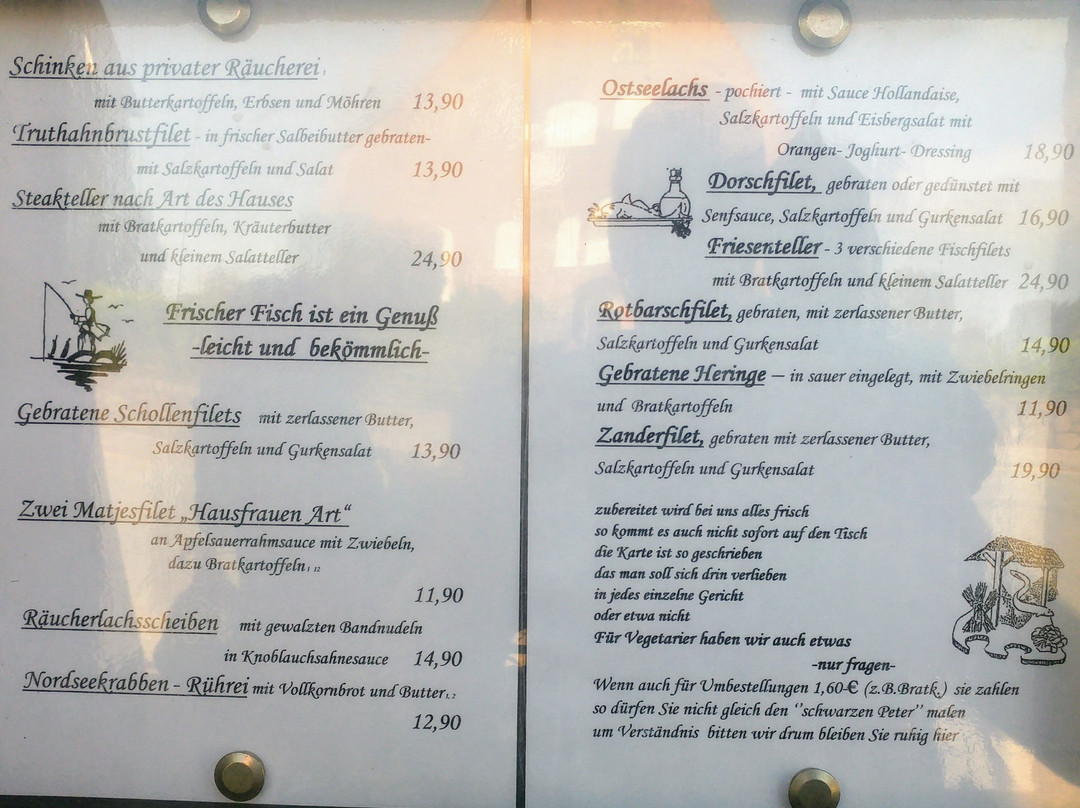 Schinken aus privater Räucherei 1
mit Butterkartoffeln, Erbsen und Möhren 13,90
Truthahnbrustfilet - in frischer Salbeibutter gebraten-
mit Salzkartoffeln und Salat 13,90
Steakteller nach Art des Hauses
mit Bratkartoffeln, Kräuterbutter
und kleinem Salatteller 24,90
Frischer Fisch ist ein Genuß
-leicht und bekömmlich-
Gebratene Schollenfilets mit zerlassener Butter,
Salzkartoffeln und Gurkensalat 13,90
Zwei Matjesfilet „Hausfrauen Art“
an Apfelsauerrahmsauce mit Zwiebeln,
dazu Bratkartoffeln 1 12
11,90
Räucherlachsscheiben mit gewalzten Bandnudeln
in Knoblauchsahnesauce 14,90
Nordseekrabben - Rührei mit Vollkornbrot und Butter 1, 2
12,90
Ostseelachs - pochiert - mit Sauce Hollandaise,
Salzkartoffeln und Eisbergsalat mit
Orangen- Joghurt- Dressing 18,90
Dorschfilet, gebraten oder gedünstet mit
Senfsauce, Salzkartoffeln und Gurkensalat 16,90
Friesenteller - 3 verschiedene Fischfilets
mit Bratkartoffeln und kleinem Salatteller 24,90
Rotbarschfilet, gebraten, mit zerlassener Butter,
Salzkartoffeln und Gurkensalat 14,90
Gebratene Heringe — in sauer eingelegt, mit Zwiebelringen
und Bratkartoffeln 11,90
Zanderfilet, gebraten mit zerlassener Butter,
Salzkartoffeln und Gurkensalat 19,90
zubereitet wird bei uns alles frisch
so kommt es auch nicht sofort auf den Tisch
die Karte ist so geschrieben
das man soll sich drin verlieben
in jedes einzelne Gericht
oder etwa nicht
Für Vegetarier haben wir auch etwas
-nur fragen-
Wenn auch für Umbestellungen 1,60-€ (z.B.Bratk.) sie zahlen
so dürfen Sie nicht gleich den ‘’schwarzen Peter’’ malen
um Verständnis bitten wir drum bleiben Sie ruhig hier